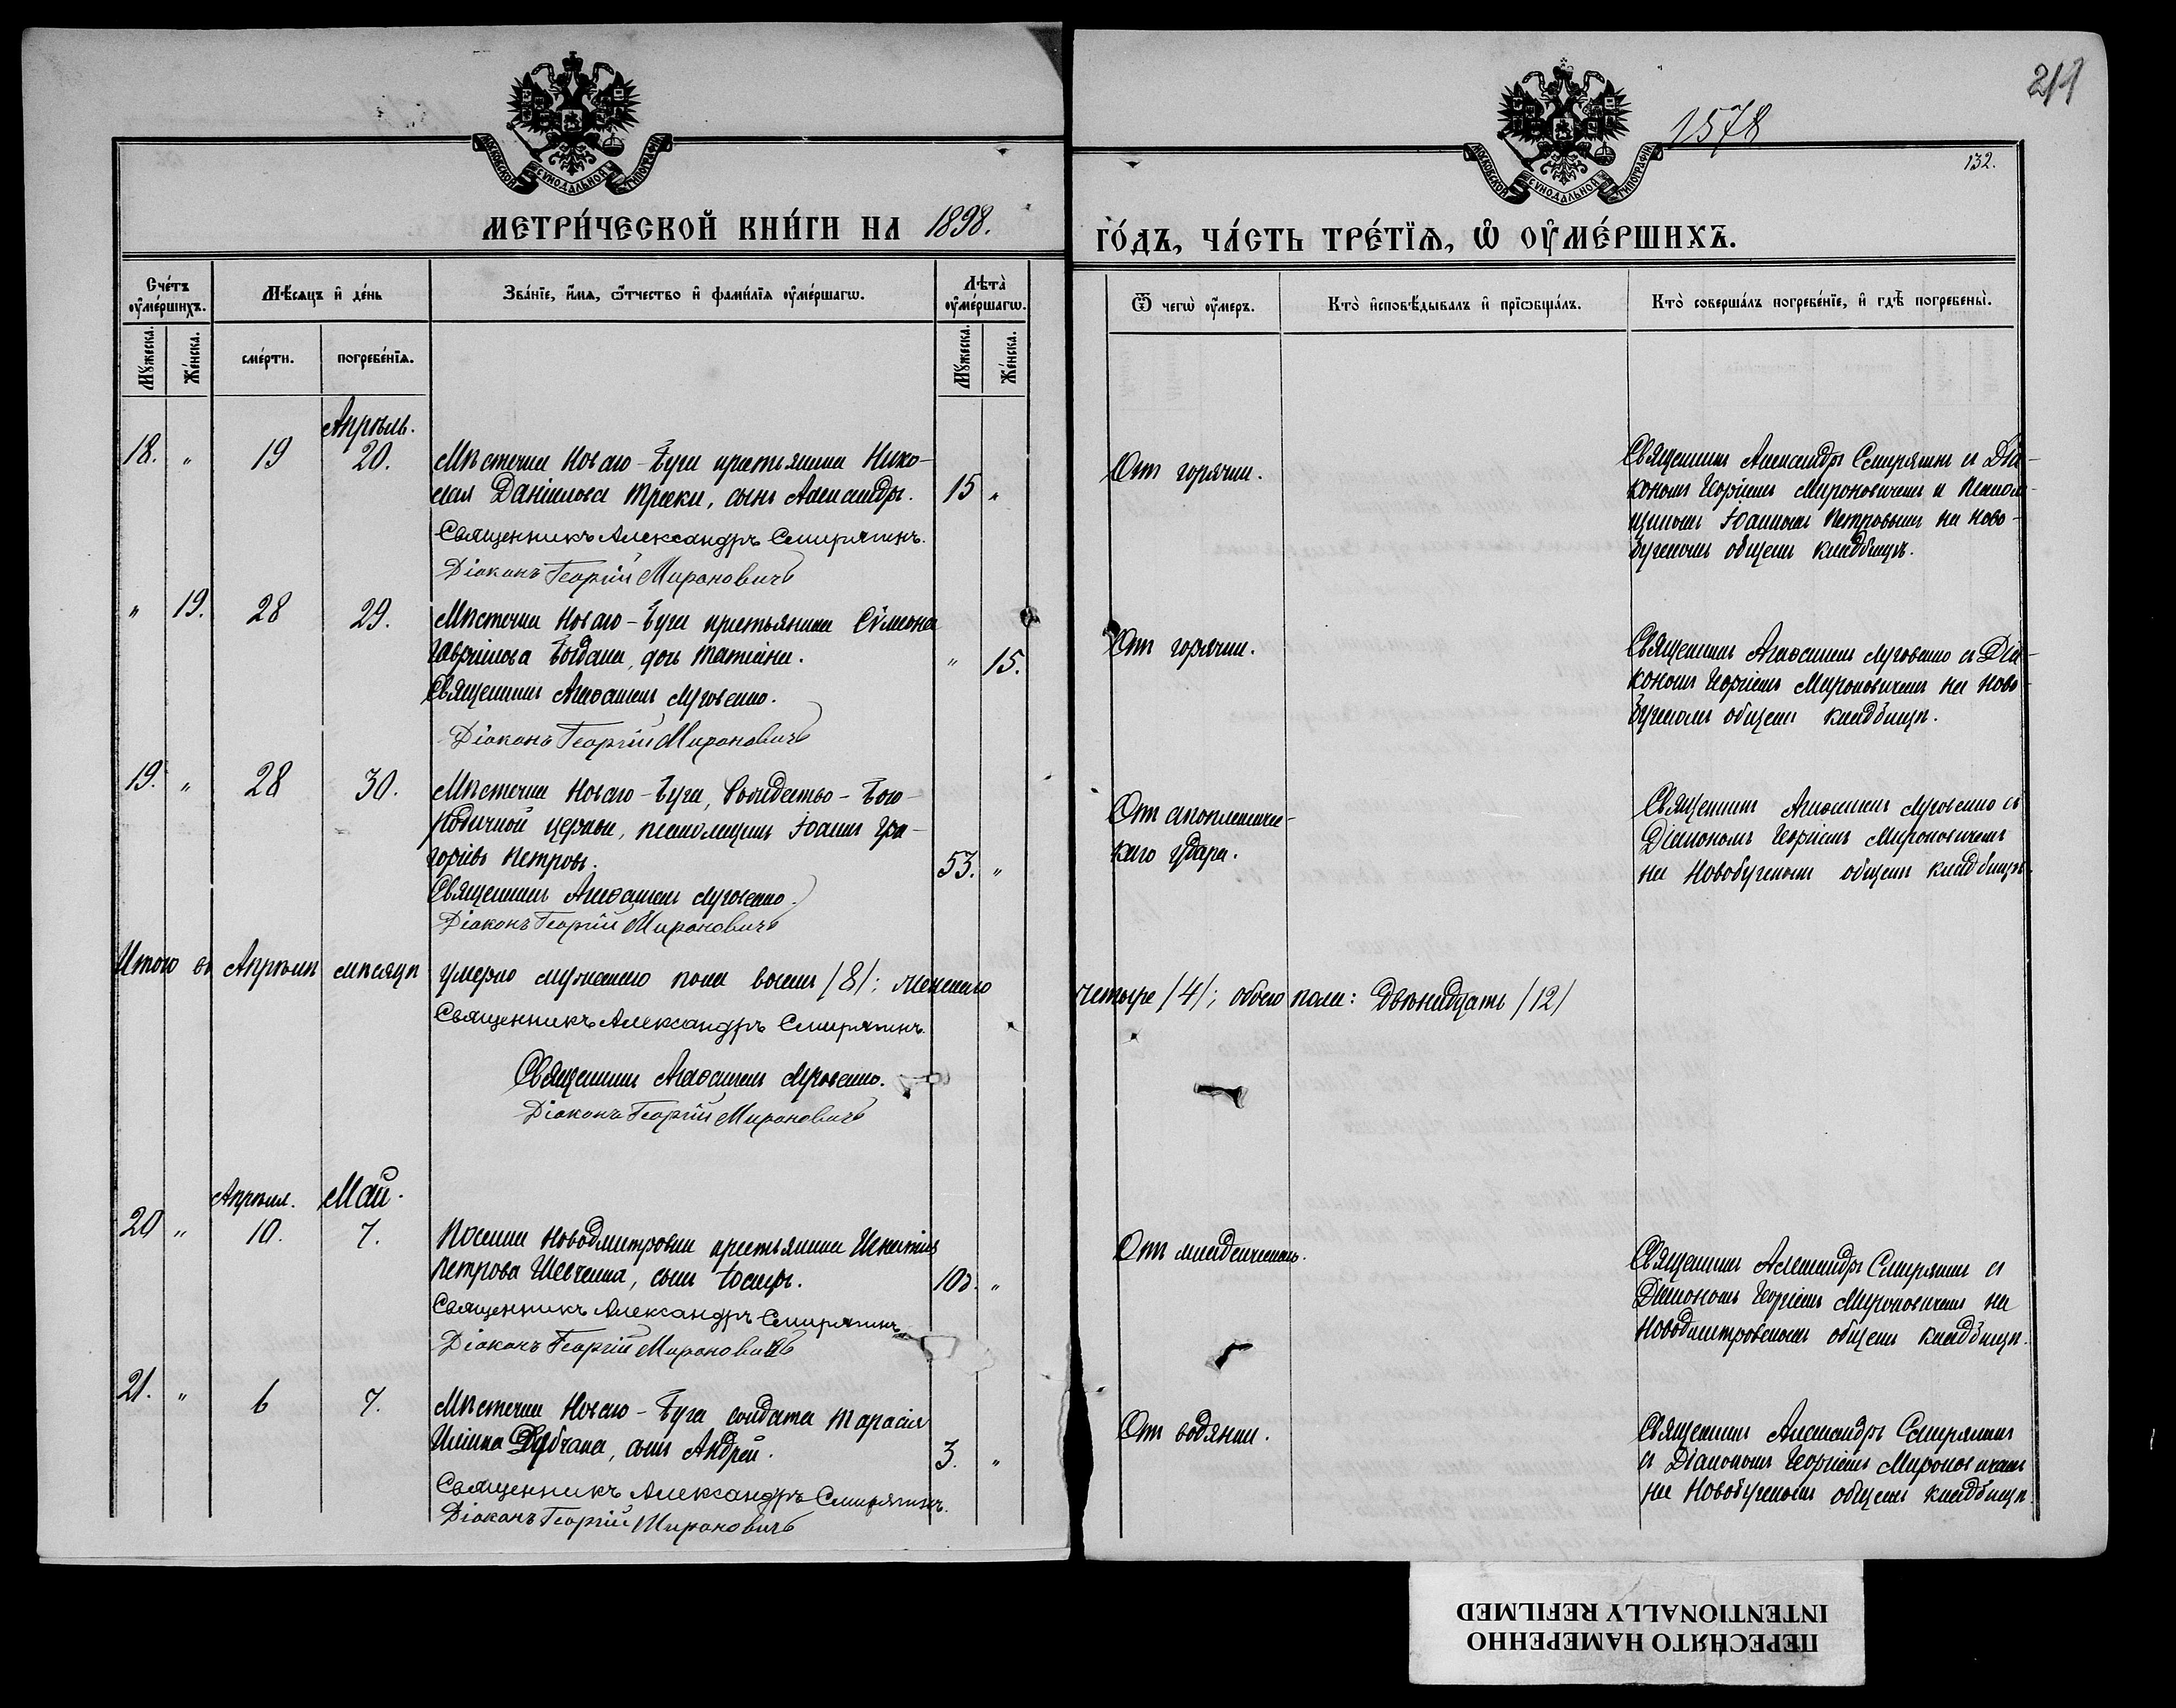 1578
219
132.
МОСКОВСКОЙ СѴНОДАЛЬНОЙ ТИПОГРАФІИ
МОСКОВСКОЙ СѴНОДАЛЬНОЙ ТИПОГРАФІИ
МЕТРИ́ЧЕСКОЙ КНИ́ГИ НА 1898. ГО́ДЪ, ЧА́СТЬ ТРЕ́ТЇѦ, Ѡ҆ ОУ҆МЕ́РШИХЪ.
Сче́тъ оу҆ме́ршихъ.
Мꙋ́жеска.
Же́нска.
Мѣ́сѧцъ и҆ де́нь
сме́рти.
погребе́нїѧ.
Зва́нїе, и҆́мѧ, ѻ҆́тчество и҆ фами́лїѧ оу҆ме́ршагѡ.
Лѣ̑та̀ оу҆ме́ршагѡ.
Мꙋ́жеска.
Же́нска.
Ѿ чегѡ̀ оу҆́меръ.
Кто̀ и҆сповѣ́дывалъ и҆ прїѡбща́лъ.
Кто̀ соверша́лъ погребе́нїе, и҆ гдѣ̀ погребены̀.
Апрѣль.
18. „ 19 20.
Мѣстечка Новаго-Буга крестьянина Нико-
лая Даніилова сынъ Александръ. 15 „
Священникъ Александръ Смирягинъ.
Діаконъ Георгій Мироновичъ
Отъ горячки.
Священникъ Александръ Смирягинъ съ Діа-
кономъ Георгіемъ Мироновичемъ и псалом-
щикомъ Іоанномъ Петровымъ на Ново-
бугскомъ общемъ кладбищѣ.
„ 19. 28 29.
Мѣстечка Новаго-Буга крестьянина Сѵмеона
Гавріилова Богдана, дочь Татіана. „ 15.
Священникъ
Діаконъ Георгій Мироновичъ
Отъ горячки.
Священникъ съ Діа-
кономъ Георгіемъ Мироновичемъ на Ново-
бугскомъ общемъ кладбищѣ.
19. „ 28 30.
Мѣстечка Новаго-Буга, Рождество-Бого-
родичной церкви, псаломщикъ Іоаннъ Гри-
горіевъ Петровъ. 53. „
Священникъ
Діаконъ Георгій Мироновичъ
Отъ апоплексиче-
скаго удара.
Священникъ съ
Діакономъ Георгіемъ Мироновичемъ
на Новобугскомъ общемъ кладбищѣ.
Итого въ Апрѣлѣ мѣсяцѣ умерло мужескаго пола восемь /8/; женскаго четыре /4/; обоего пола: двѣнадцать /12/
Священникъ Александръ Смирягинъ.
Священникъ
Діаконъ Георгій Мироновичъ
Апрѣля. Май.
20 „ 10. 7.
Поселка Новодмитровки крестьянина Игнатія
Петрова Шевченка, сынъ Іосифъ. 10 д. „
Священникъ Александръ Смирягинъ
Діаконъ Георгій Мироновичъ
Отъ младенческой.
Священникъ Александръ Смирягинъ съ
Діакономъ Георгіемъ Мироновичемъ на
Новодмитровскомъ общемъ кладбищѣ.
21. „ 6 7.
Мѣстечка Новаго-Буга солдата Тарасія
сынъ Андрей. 3. „
Священникъ Александръ Смирягинъ.
Діаконъ Георгій Мироновичъ
Отъ водянки.
Священникъ Александръ Смирягинъ
съ Діакономъ Георгіемъ Мироновичемъ
на Новобугскомъ общемъ кладбищѣ.
ПЕРЕСНЯТО НАМЕРЕННО
INTENTIONALLY REFILMED